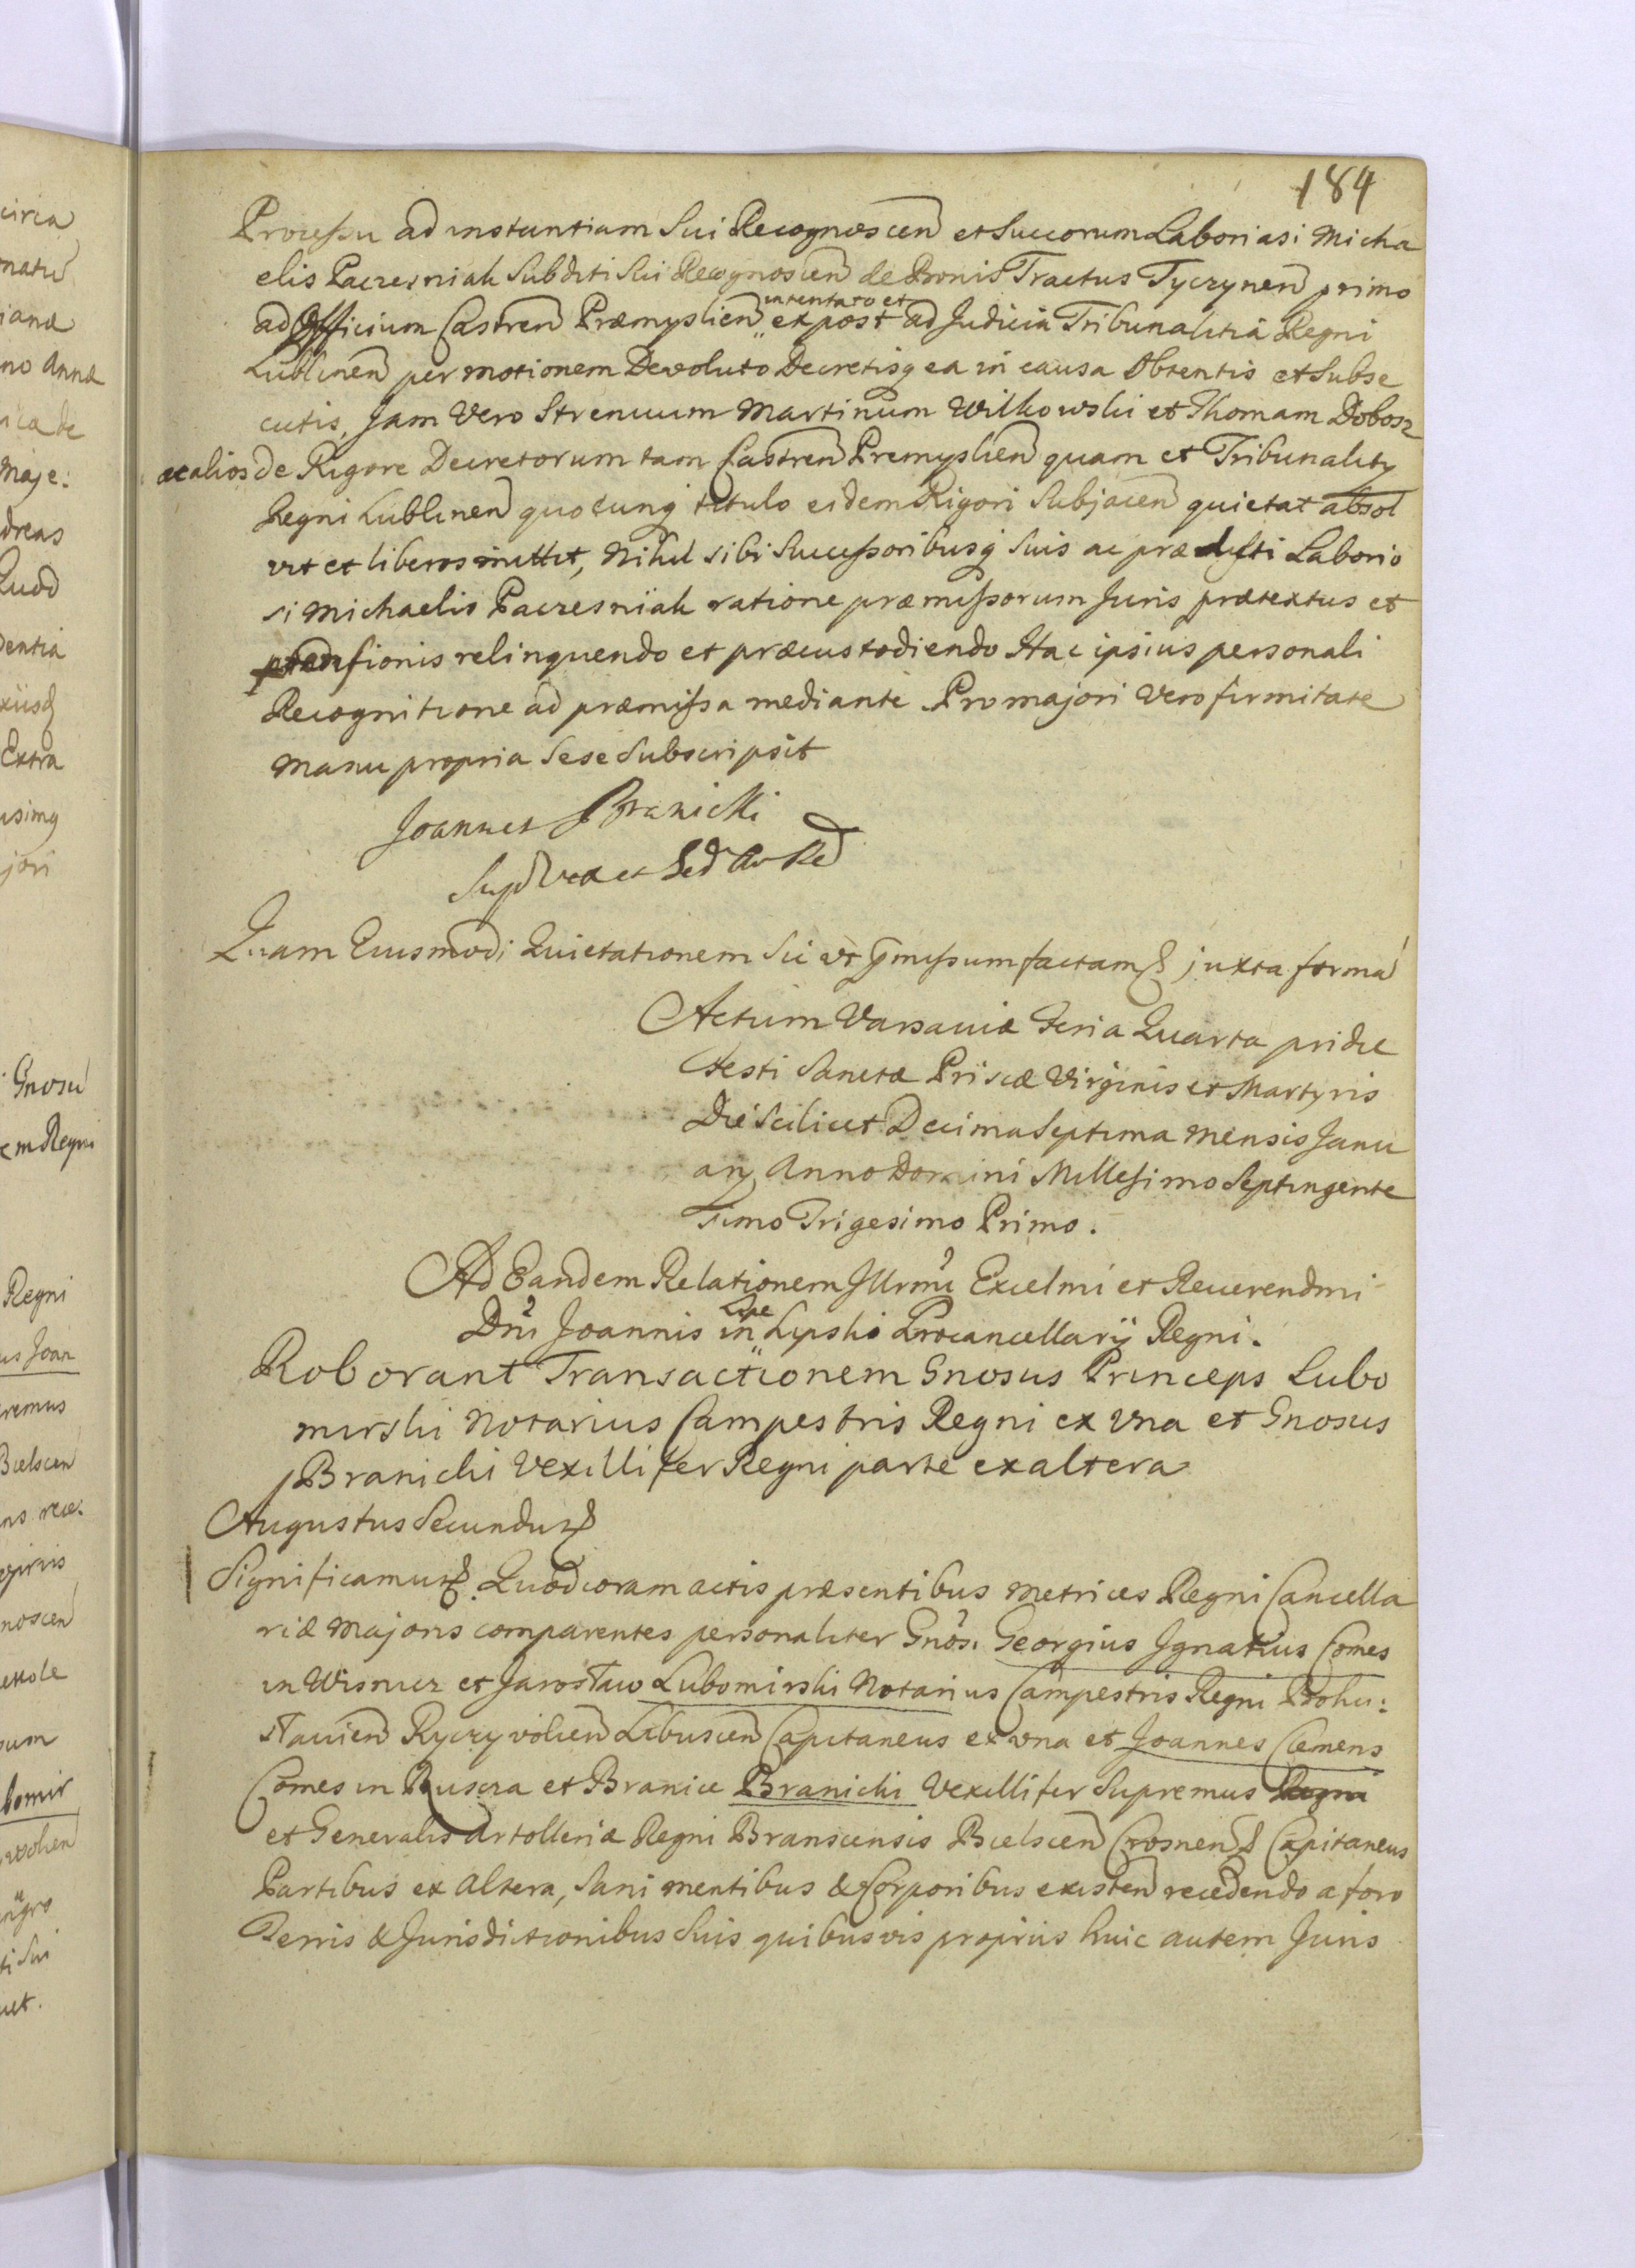 184
Processu ad instantiam Sui Recognoscen et Succorum Laboriasi Micha
elis Paczesniak Subditi Sui Recognoscen de Bonis Tractus Tyczynen primo
ad Officium Castren Præmyslien intentato et ex post ad Judicia Tribunalitia Regni
Lublinen per motionem Devoluto Decretisq ea in causa Obtentis et Subse
cutis, Jam Vero Strenuum Martinum Wilkowski et Thomam Dobosz
ac alios de Rigore Decretorum tam Castren Premyslien quam et Tribunality
Regni Lublinen quocunq titulo eidem Rigori Subjacen quietat absol
vit et liberos mittit, Nihil sibi Successoribusq Suis ac prædicti Laborio
si Michaelis Paczesniak ratione præmissorum Juris prætextus et
prætensionis relinquendo et præcustodiendo Hac ipsius personali
Recognitione ad præmissa mediante Pro majori Vero firmitate
Manu propria Sese Subscripsit
Joannes Branicki
Quam Eiusmodi Quietationem Sic ut pmissum factam juxta formã
Actum Varsaviæ Feria Quarta pridie
Festi Sanctæ Priscæ Virginis et Martyris
Die Scilicet Decima Septima Mensis Janu
arij Anno Domini Millesimo Septingente
simo Trigesimo Primo.
Ad Eandem Relationem Illrmi Excelmi et Reverendmi
Dni Joannis in Lipe Lipski Procancellarij Regni.
Roborant Transactionem Gnosus Princeps Lubo
mirski Notarius Campestris Regni ex Una et Gnosus
Branicki Vexillifer Regni parte ex altera
Augustus Secundus
Significamus. Quod coram actis præsentibus Metrices Regni Cancella
riæ Majoris comparentes personaliter Gnosi Georgius Ignatius Comes
in Wisnicz et Jarosław Lubomirski Notarius Campestris Regni Bohu:
slavien Ryczyvolien Libuscen Capitaneus ex una et Joannes Clemens
Comes in Ruscza et Branice Branicki Vexillifer Supremus Regni
et Generalis Artolleriæ Regni Branscensis Bielscen Crosnen Capitaneus
Partibus ex altera, Sani mentibus & Corporibus existen recedendo a foro
Terris & Jurisdictionibus Suis quibusvis propriis huic autem Juris